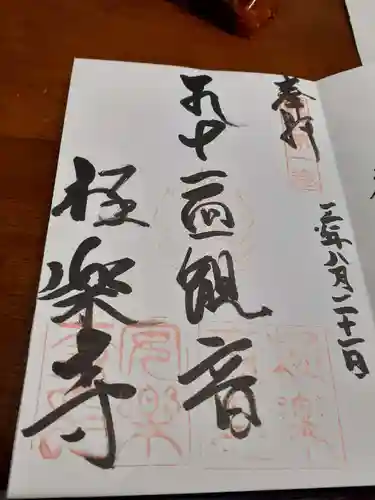 奉拝
三年八月二十一日
十一面観音
極楽寺